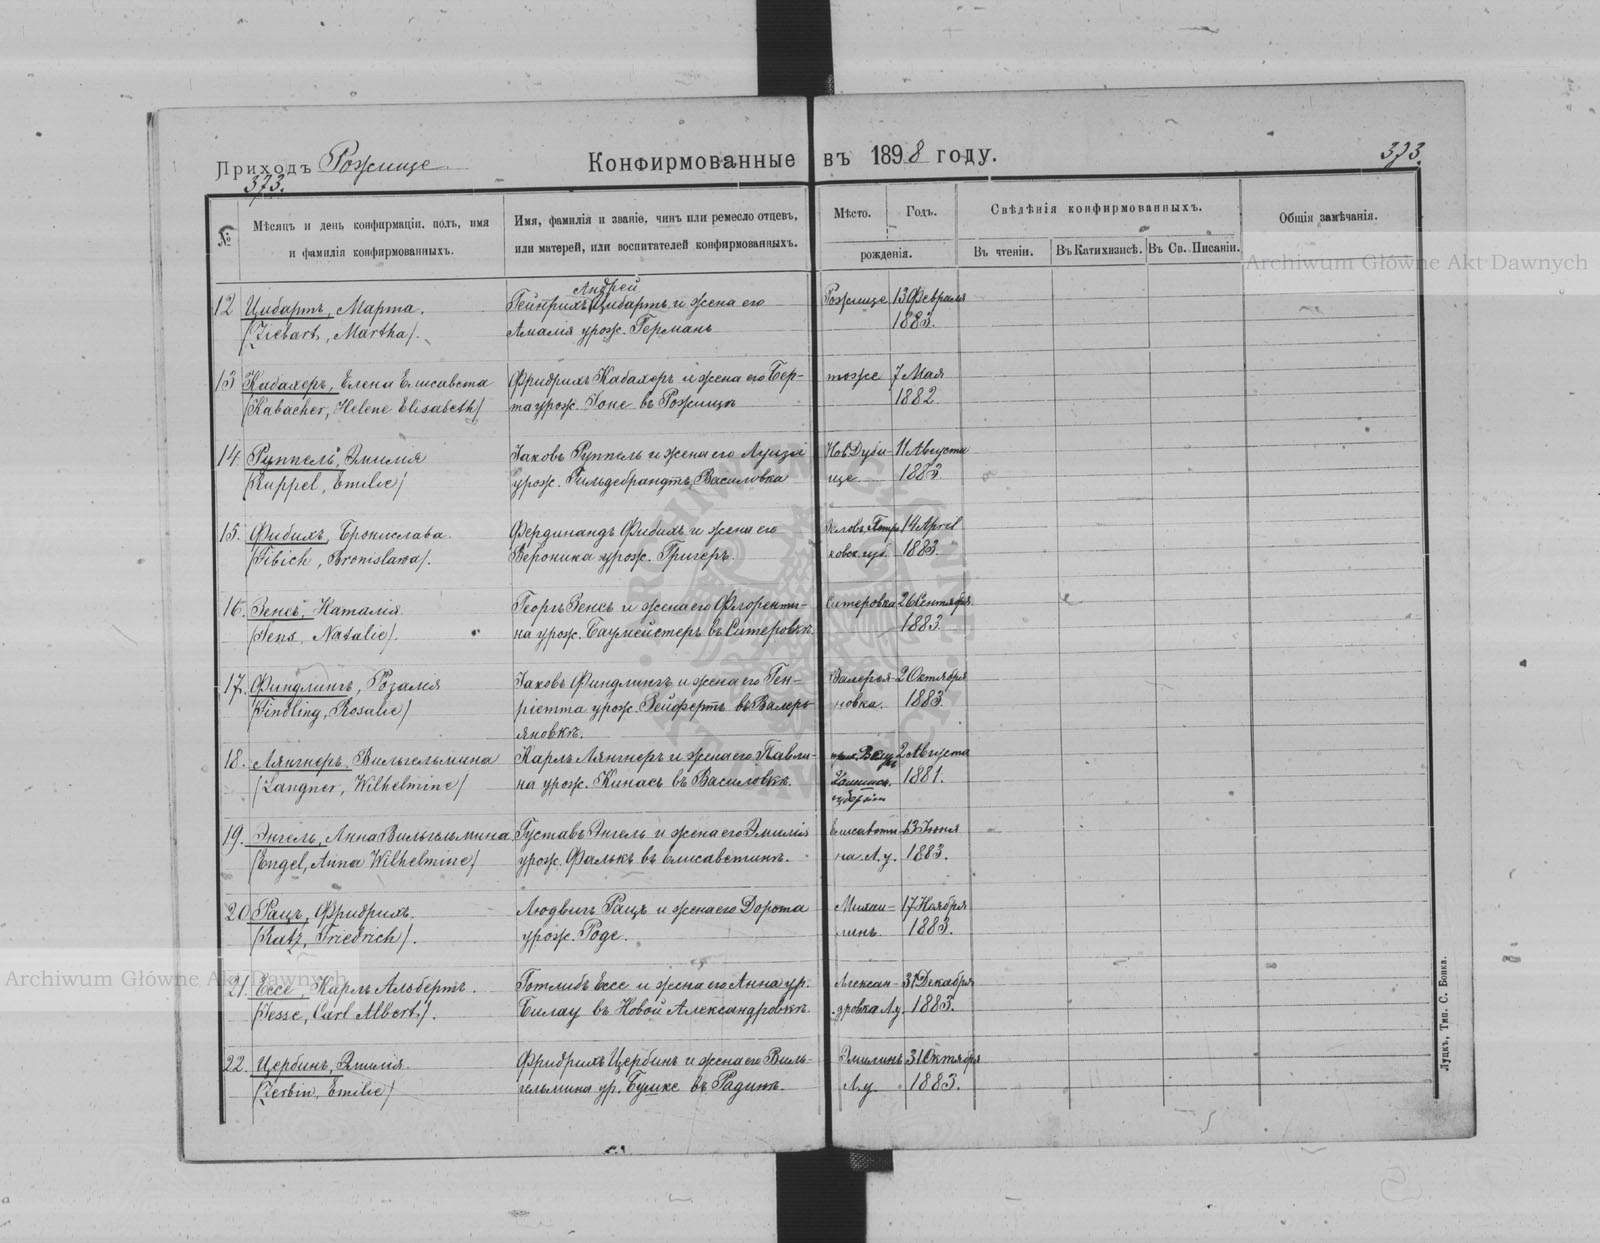 Приходъ Рожище
373.
Конфирмованные въ 1898 году.
373.
№
Мѣсяцъ и день конфирмаціи, полъ, имя
и фамилія конфирмованныхъ.
Имя, фамилія и званіе, чинъ или ремесло отцевъ,
или матерей, или воспитателей конфирмованныхъ.
Мѣсто.
Годъ.
рожденія.
Свѣдѣнія конфирмованныхъ.
Въ чтеніи.
Въ Катихизисѣ.
Въ Св. Писаніи.
Общія замѣчанія.
12 Цибартъ, Марта.
(Ziebart, Martha).
Андрей
Гейнрихъ Цибартъ и жена его
Амалія урож. Германъ
Рожище
13 Февраля
1883.
13 Кабахеръ, Елена Елисавета
(Kabacher, Helene Elisabeth)
Фридрихъ Кабахеръ и жена его Бер-
та урож. Іоне въ Рожищѣ
тоже
7 Мая
1882
14 Руппель, Эмилія
(Ruppel, Emilie)
Іаковъ Руппель и жена его Луиза
урож. Гильдебрандтъ, Василовка
Нов. Дуби-
ще
11 Августа
1883.
15. Фибихъ, Брониславa.
(Fibich, Bronislawa).
Фердинандъ Фибихъ и жена его
Вероника урож. Григеръ.
Петро
ковск. губ.
14 April
1883.
16. Зенсъ, Наталія
(Sens, Natalie).
Георгъ Зенсъ и жена его Флоренти-
на урож. Баумейстеръ въ Ситеровкѣ.
Ситеровка
26 Сентября
1883.
17. Финдлингъ, Розалія
(Findling, Rosalie)
Іаковъ Финдлингъ и жена его Ген-
ріетта урож. Зейфертъ въ Валерь-
яновкѣ.
Валерья-
новка.
2 Октября
1883.
18. Лянгнеръ, Вильгельмина
(Langner, Wilhelmine)
Карлъ Лянгнеръ и жена его Павли-
на урож. Кинасъ въ Василовкѣ.
губерніи
2 Августа
1881.
19. Энгель, Анна Вильгельмина
(Engel, Anna Wilhelmine)
Густавъ Энгель и жена его Эмилія
урож. Фалькъ въ Елисаветинѣ.
Елисавети-
на Л.у.
13 Іюня
1883.
20 Рацъ, Фридрихъ.
(Ratz, Friedrich).
Людвигъ Рацъ и жена его Дорота
урож. Роде.
Михаи-
линъ
17 Ноября
1883.
21. Ессе, Карлъ Альбертъ.
(Jesse, Carl Albert).
Готлибъ Ессе и жена его Анна ур.
Билау въ Новой Александровкѣ.
Алексан-
дровка Л.у.
31 Декабря
1883.
22. Цербинъ, Эмилія.
(Zerbin, Emilie)
Фридрихъ Цербинъ и жена его Виль-
гельмина ур. Бушке въ Радинѣ.
Эмилинъ
Л.у
31 Октября
1883.
Луцкъ, Тип. С. Бонка.
Archiwum Główne Akt Dawnych
Archiwum Główne Akt Dawnych